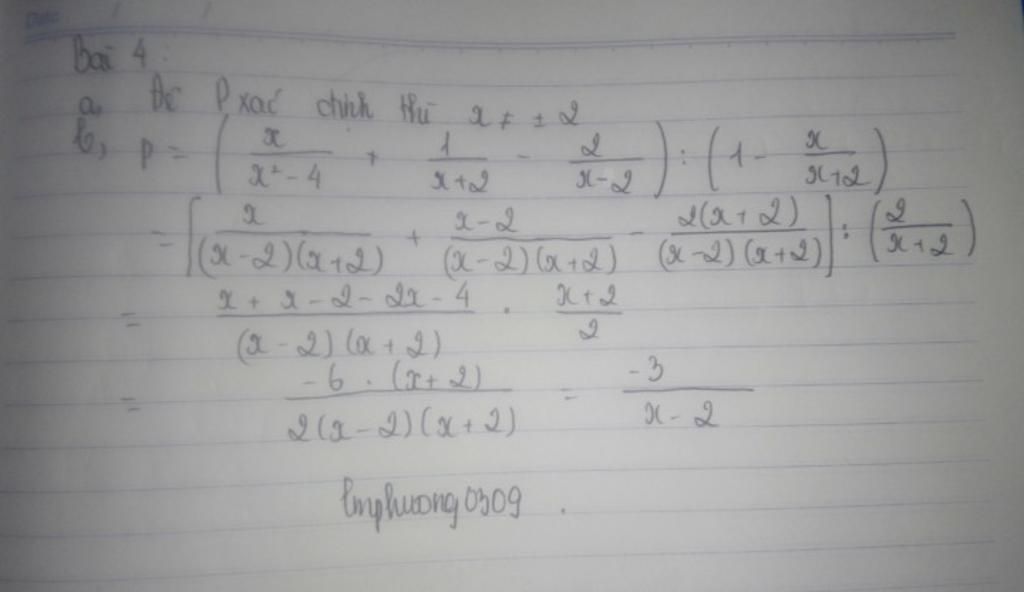 Date / /
Bài 4:
a, Để P xác định thì x ≠ ± 2
b, P = ( x/(x² - 4) + 1/(x+2) - 2/(x-2) ) : ( 1 - x/(x+2) )
= [ x/((x-2)(x+2)) + (x-2)/((x-2)(x+2)) - 2(x+2)/((x-2)(x+2)) ] : ( 2/(x+2) )
= (x + x - 2 - 2x - 4)/((x-2)(x+2)) . (x+2)/2
= (-6 . (x+2))/(2(x-2)(x+2)) = -3/(x-2)
lmphuong0309 .